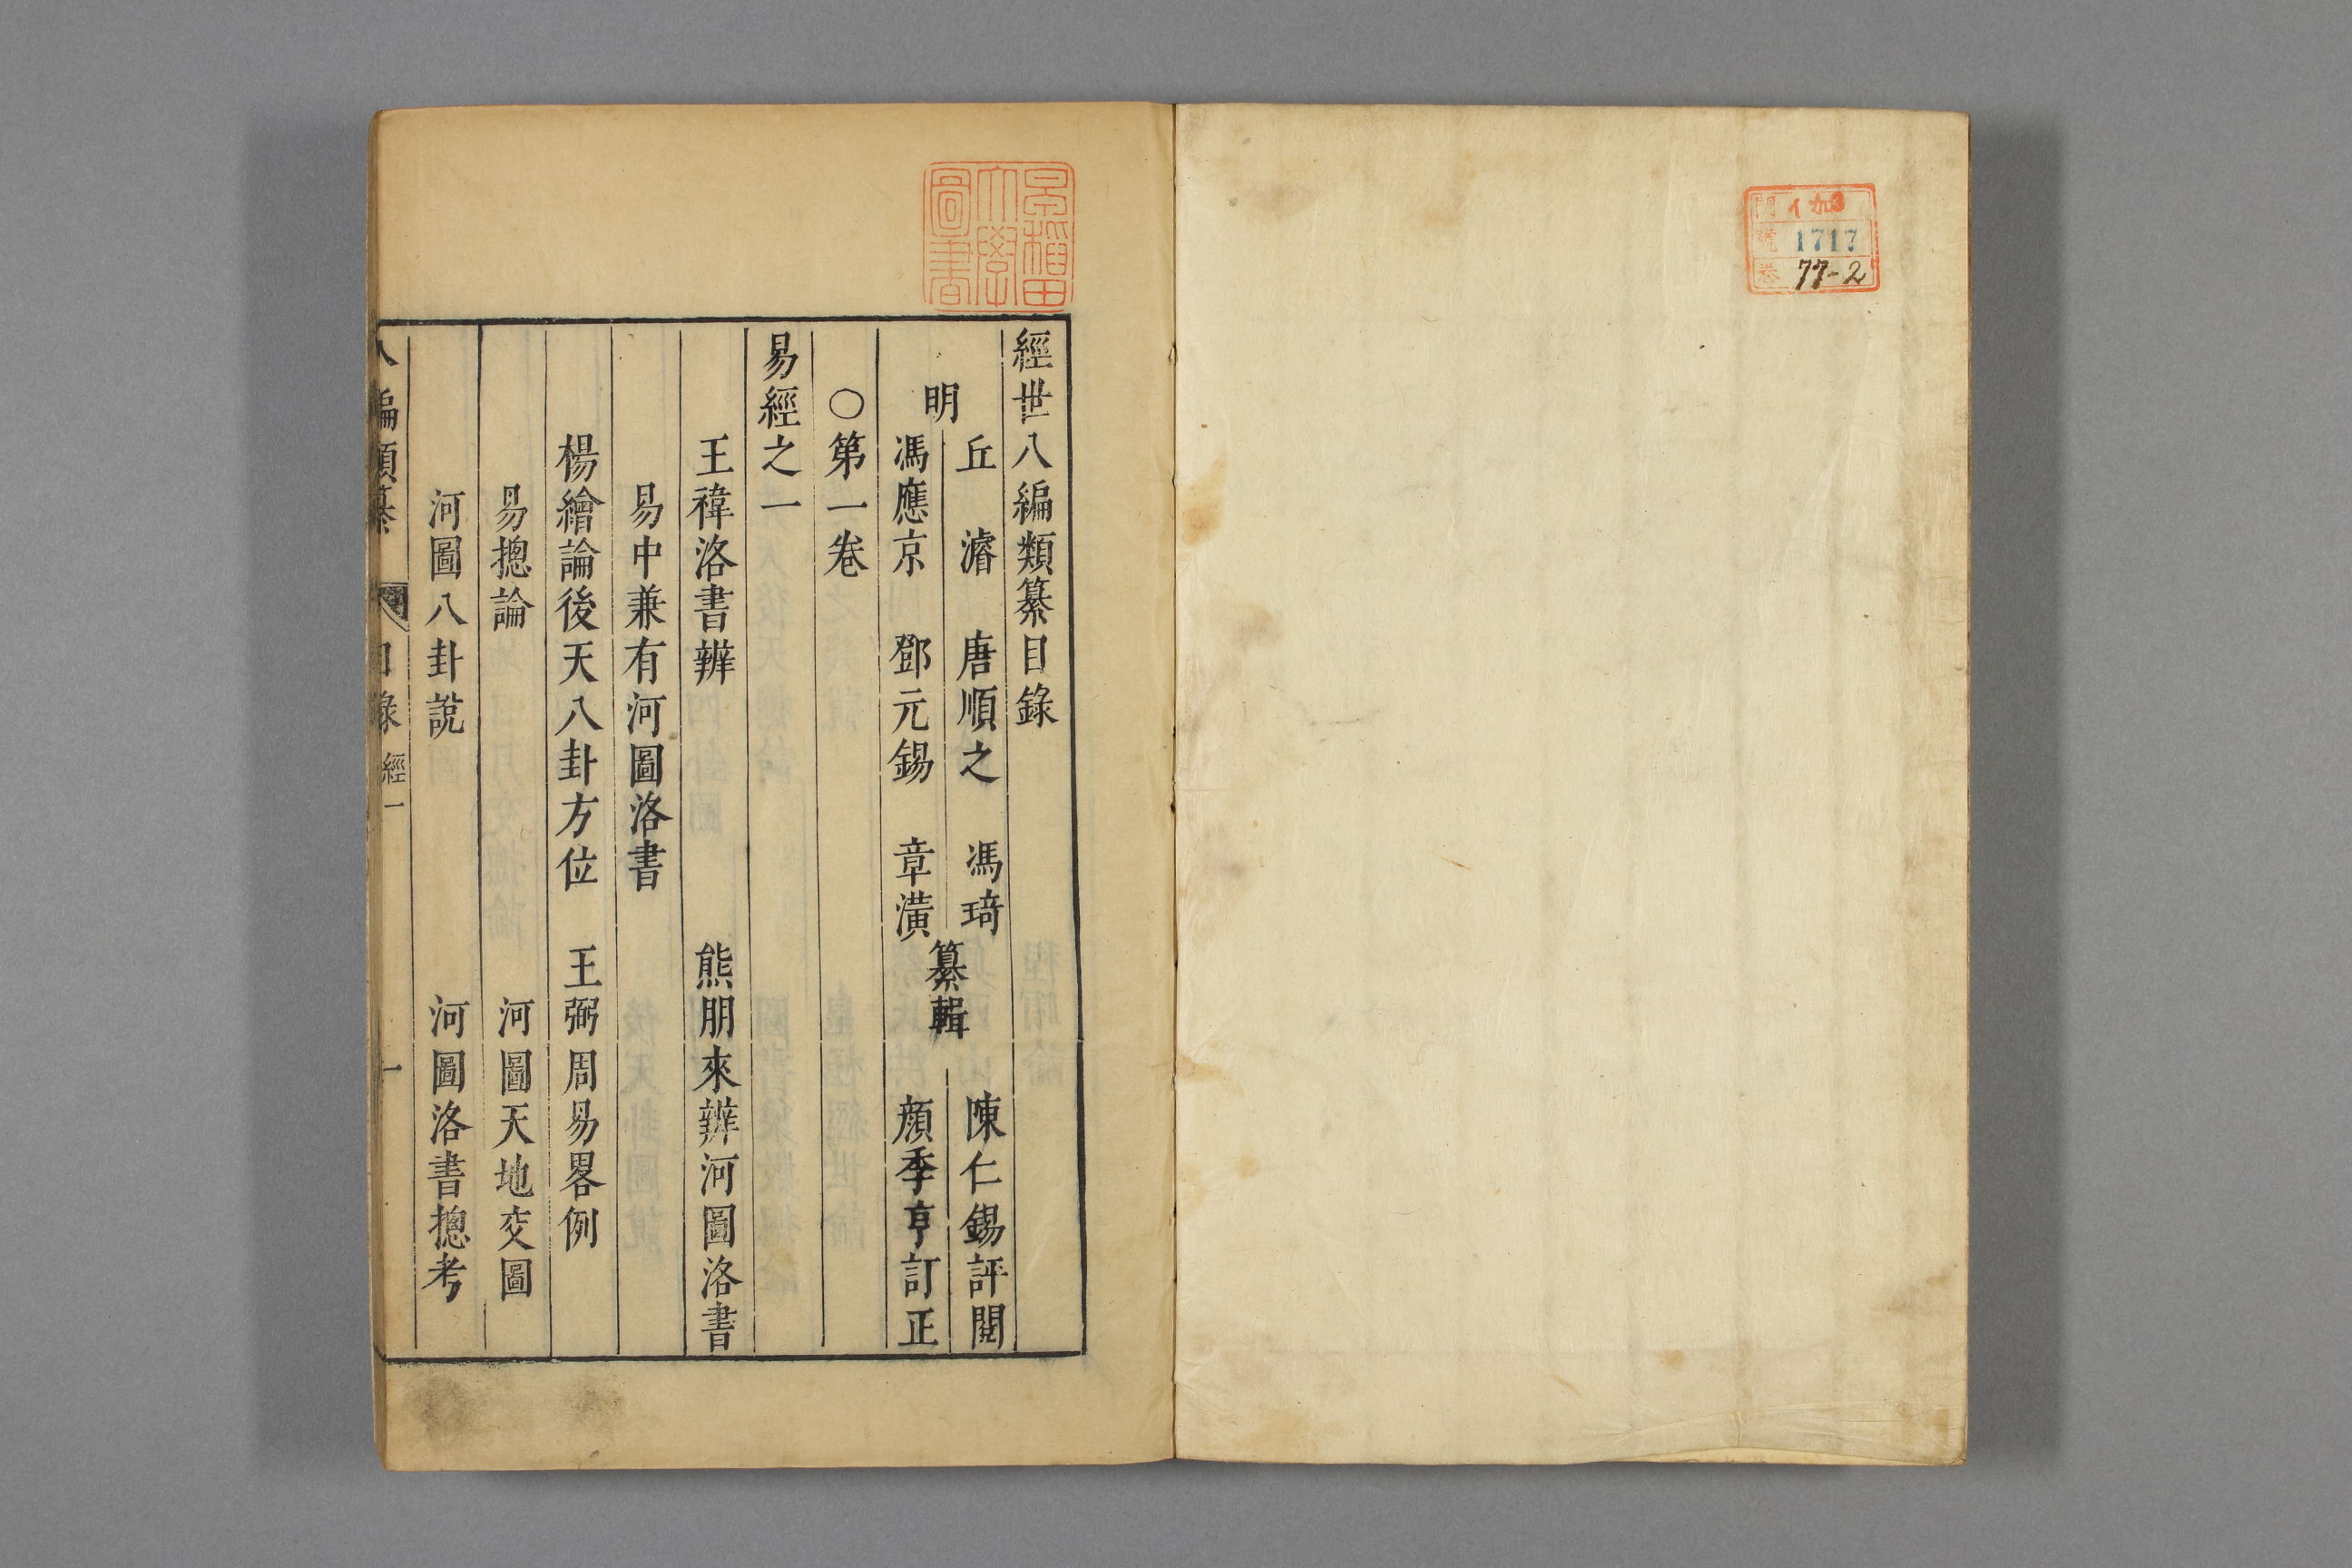 門 イ 加3
號 1717
卷 77-2
早稲田
大學
圖書
經世八編類纂目錄
明
丘濬 唐順之 馮琦
馮應京 鄧元錫 章潢
纂輯
陳仁錫評閱
顔季亨訂正
○第一卷
易經之一
王禕洛書辨 熊朋來辨河圖洛書
易中兼有河圖洛書
楊繪論後天八卦方位 王弼周易畧例
易揔論 河圖天地交圖
河圖八卦說 河圖洛書揔考
八編類纂 目錄 經一 一